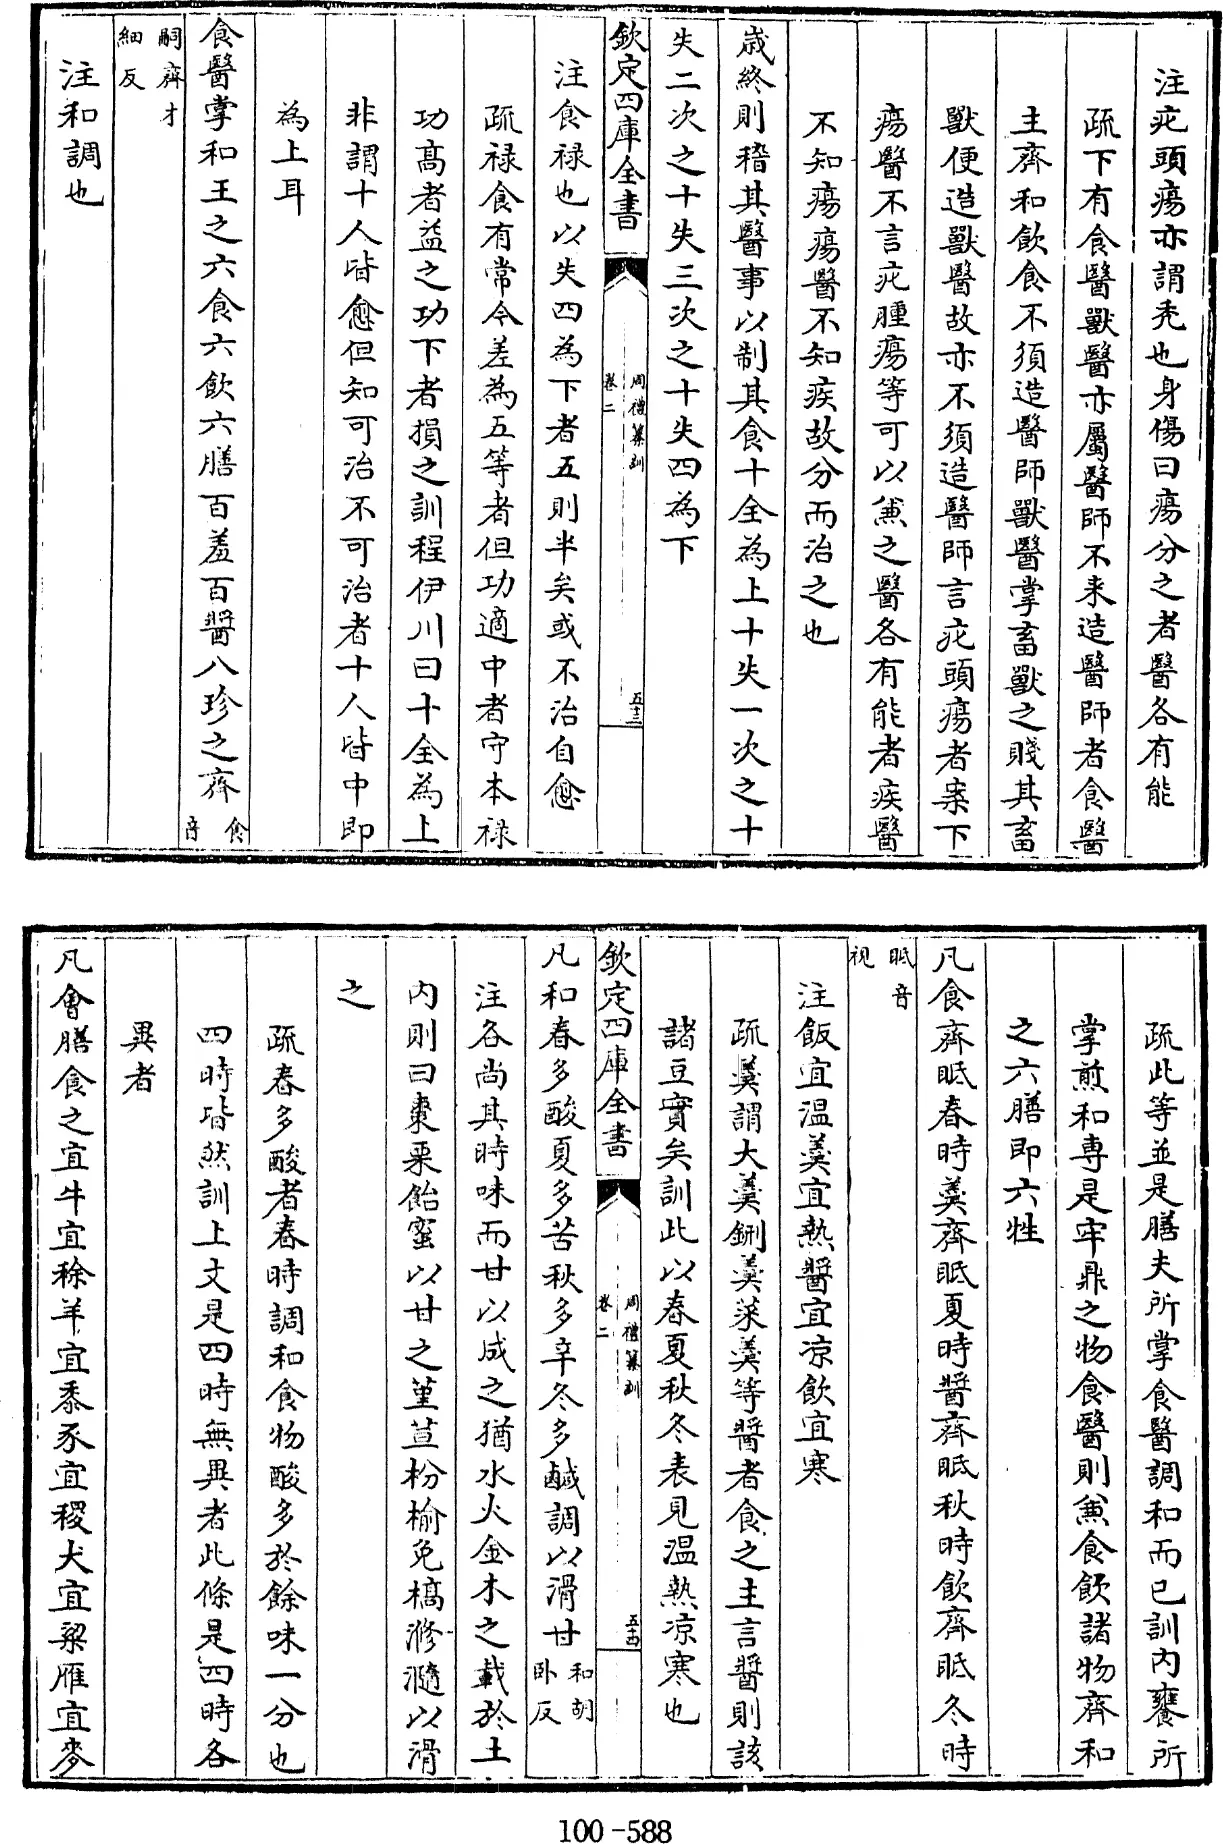 注疕頭瘍亦謂禿也身傷曰瘍分之者醫各有能
疏下有食醫獸醫亦屬醫師不来造醫師者食醫
主齊和飲食不須造醫師獸醫掌畜獸之賤其畜
獸便造獸醫故亦不須造醫師言疕頭瘍者案下
瘍醫不言疕腫瘍等可以兼之醫各有能者疾醫
不知瘍瘍醫不知疾故分而治之也
歳終則稽其醫事以制其食十全為上十失一次之十
失二次之十失三次之十失四為下
欽定四庫全書
周禮纂訓
卷二
五十三
注食禄也以失四為下者五則半矣或不治自愈
疏禄食有常今差為五等者但功適中者守本禄
功髙者益之功下者損之訓程伊川曰十全為上
非謂十人皆愈但知可治不可治者十人皆中即
為上耳
食醫掌和王之六食六飲六膳百羞百醬八珍之齊食音
嗣齊才細反
注和調也
疏此等並是膳夫所掌食醫調和而已訓内饔所
掌煎和専是牢鼎之物食醫則兼食飲諸物齊和
之六膳即六牲
凡食齊眡春時羮齊眡夏時醬齊眡秋時飲齊眡冬時
眡音視
注飯宜温羮宜熱醬宜凉飲宜寒
疏羮謂大羮鉶羮菜羮等醬者食之主言醬則該
諸豆實矣訓此以春夏秋冬表見温熱凉寒也
欽定四庫全書
周禮纂訓
卷二
五十四
凡和春多酸夏多苦秋多辛冬多鹹調以滑甘和胡卧反
注各尚其時味而甘以成之猶水火金木之載於土
内則曰棗栗飴蜜以甘之堇荁枌榆免槁滫瀡以滑
之
疏春多酸者春時調和食物酸多於餘味一分也
四時皆然訓上文是四時無異者此條是四時各
異者
凡會膳食之宜牛宜稌羊宜黍豕宜稷犬宜粱雁宜麥
100-588